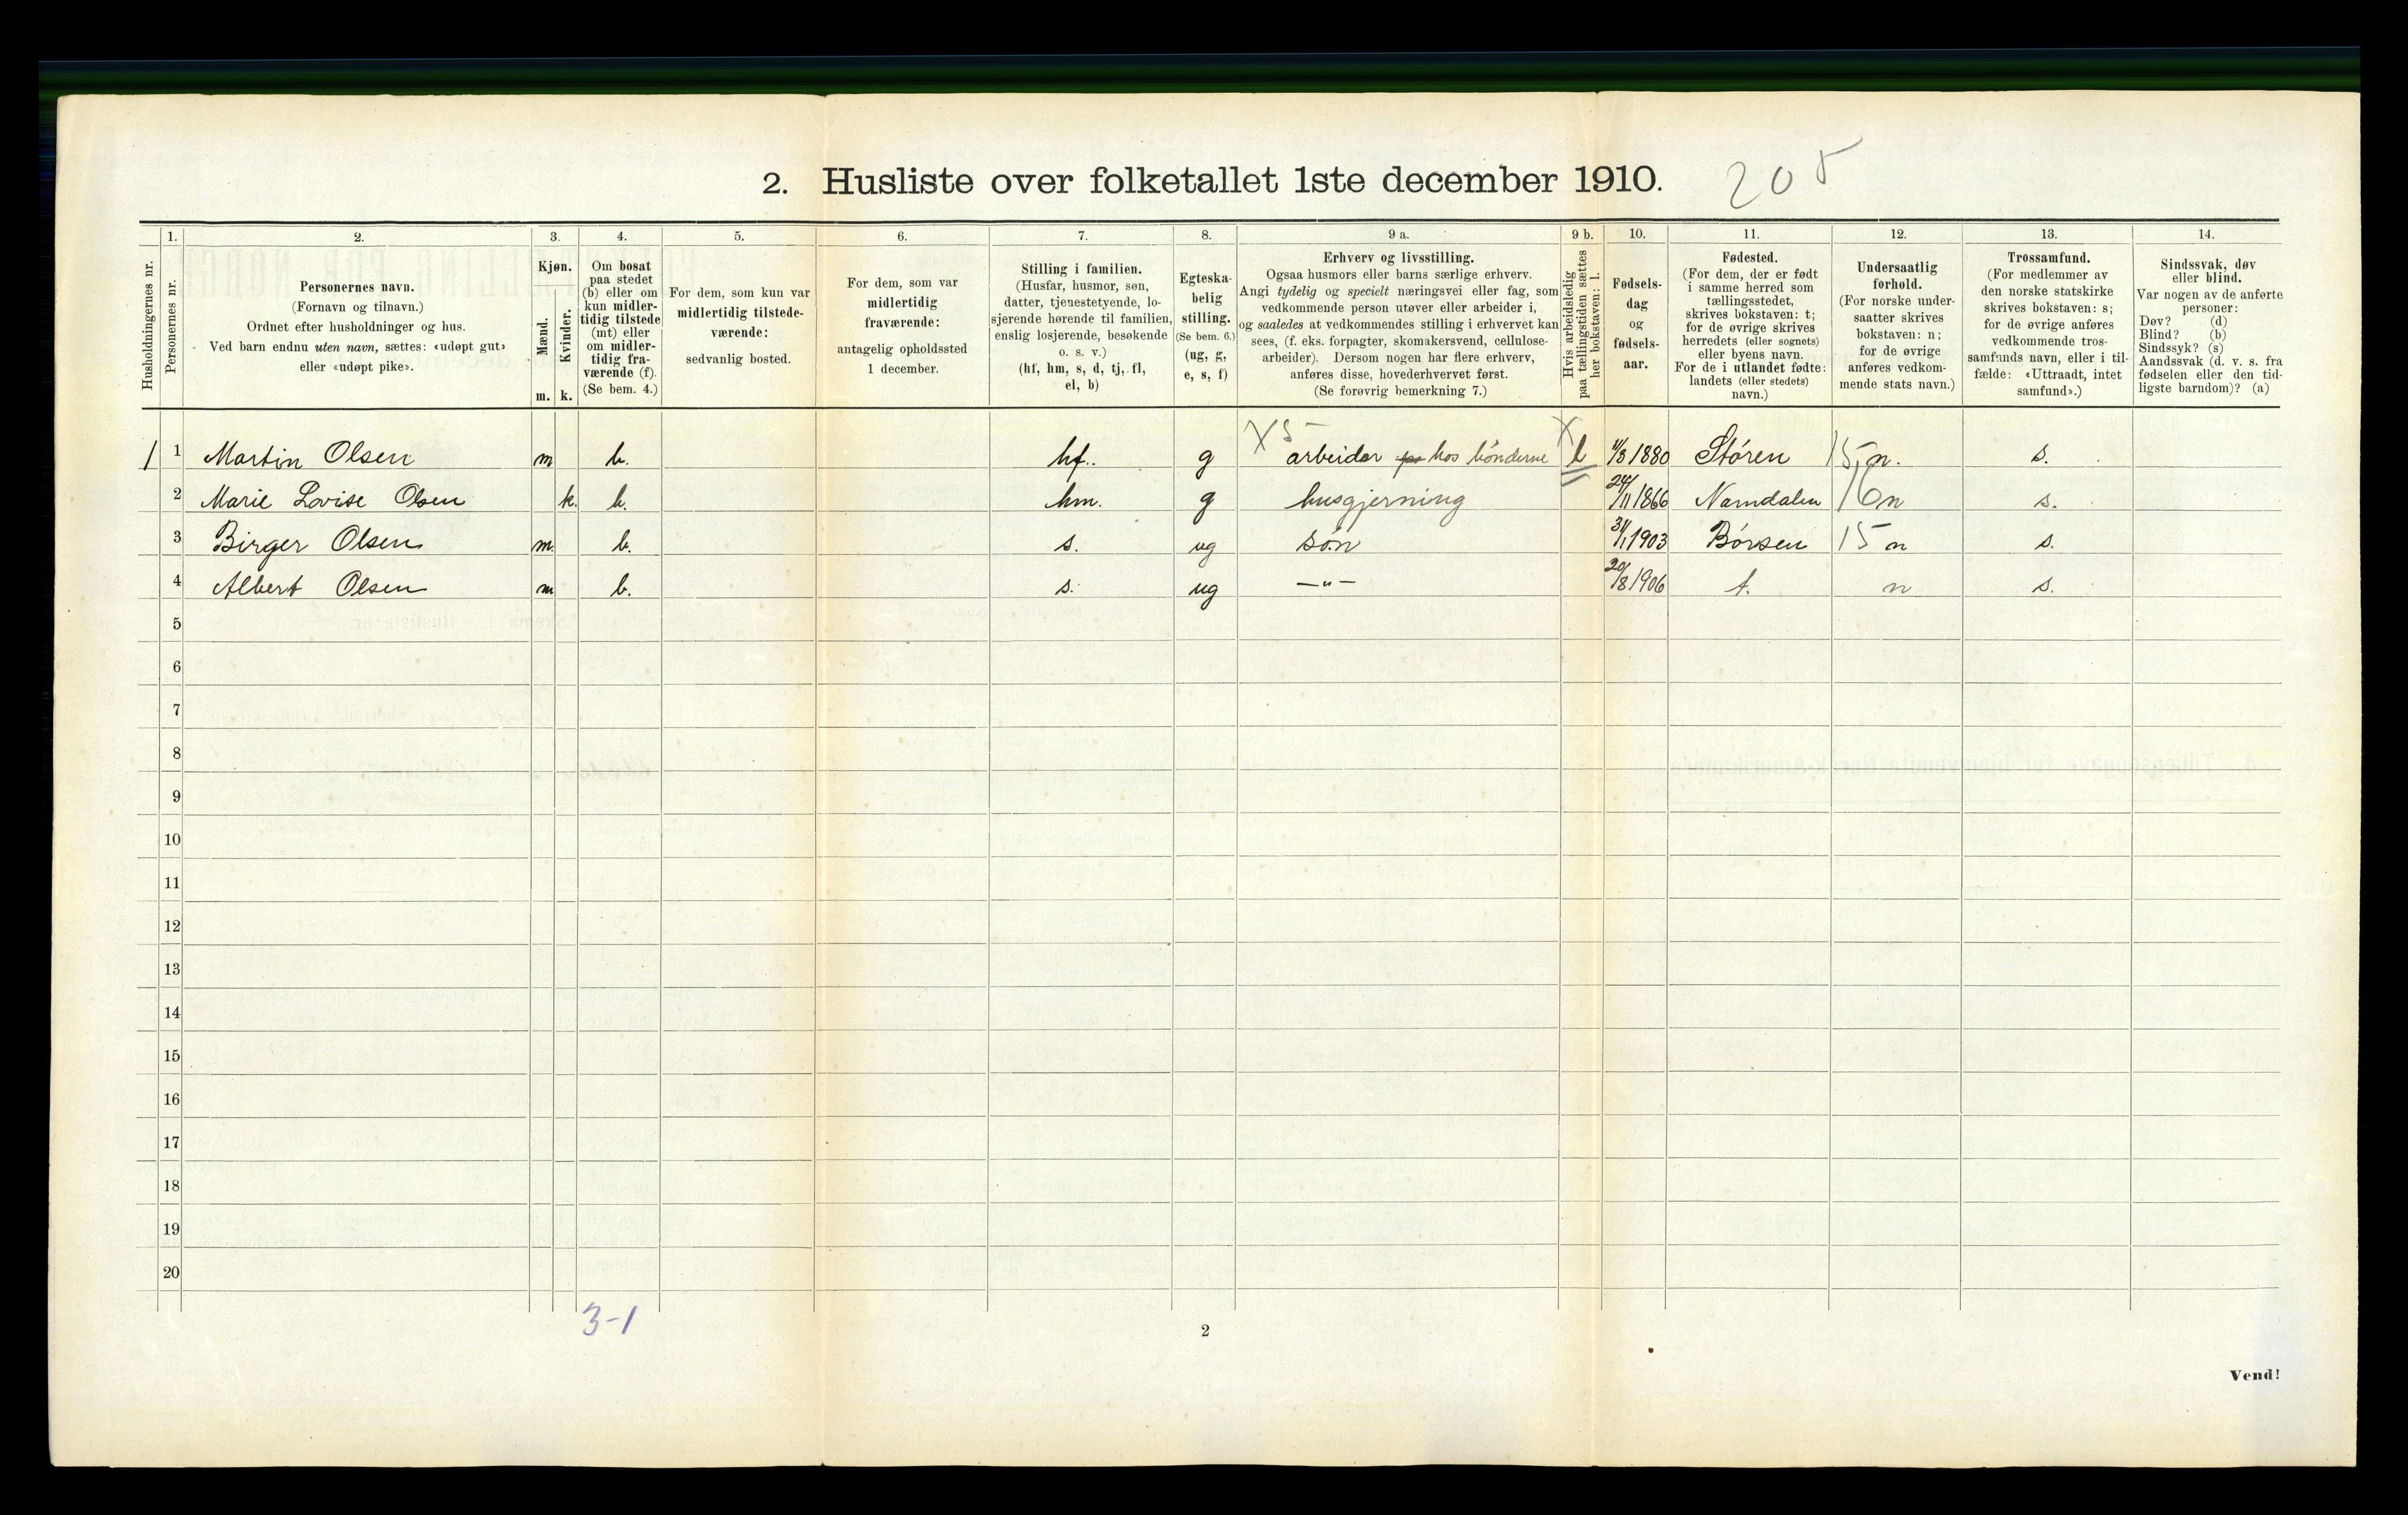 2. Husliste over folketallet 1ste december 1910. 205
Husholdningernes nr.
1.
Personernes nr.
2.
Personernes navn.
(Fornavn og tilnavn.)
Ordnet efter husholdninger og hus.
Ved barn endnu uten navn, sættes: «udøpt gut»
eller «udøpt pike».
3.
Kjøn.
Mænd.
Kvinder.
m. k.
4.
Om bosat
paa stedet
(b) eller om
kun midler-
tidig tilstede
(mt) eller
om midler-
tidig fra-
værende (f).
(Se bem. 4.)
5.
For dem, som kun var
midlertidig tilstede-
værende:
sedvanlig bosted.
6.
For dem, som var
midlertidig
fraværende:
antagelig opholdssted
1 december.
7.
Stilling i familien.
(Husfar, husmor, søn,
datter, tjenestetyende, lo-
sjerende hørende til familien,
enslig losjerende, besøkende
o. s. v.)
(hf, hm, s, d, tj, fl,
el, b)
8.
Egteska-
belig
stilling.
(Se bem. 6.)
(ug, g,
e, s, f)
9 a.
Erhverv og livsstilling.
Ogsaa husmors eller barns særlige erhverv.
Angi tydelig og specielt næringsvei eller fag, som
vedkommende person utøver eller arbeider i,
og saaledes at vedkommendes stilling i erhvervet kan
sees, (f. eks. forpagter, skomakersvend, cellulose-
arbeider). Dersom nogen har flere erhverv,
anføres disse, hovederhvervet først.
(Se forøvrig bemerkning 7.)
9 b.
Hvis arbeidsledig
paa tællingstiden sættes
her bokstaven: l.
10.
Fødsels-
dag
og
fødsels-
aar.
11.
Fødested.
(For dem, der er født
i samme herred som
tællingsstedet,
skrives bokstaven: t;
for de øvrige skrives
herredets (eller sognets)
eller byens navn.
For de i utlandet fødte:
landets (eller stedets)
navn.)
12.
Undersaatlig
forhold.
(For norske under-
saatter skrives
bokstaven: n;
for de øvrige
anføres vedkom-
mende stats navn.)
13.
Trossamfund.
(For medlemmer av
den norske statskirke
skrives bokstaven: s;
for de øvrige anføres
vedkommende tros-
samfunds navn, eller i til-
fælde: «Uttraadt, intet
samfund».)
14.
Sindssvak, døv
eller blind.
Var nogen av de anførte
personer:
Døv? (d)
Blind? (b)
Sindssyk? (s)
Aandssvak (d. v. s. fra
fødselen eller den tid-
ligste barndom)? (a)
X 5 X
1 1 Martin Olsen m b. hf. g arbeider hos bönderne l 4/3 1880 Stóren 15 n. s.
2 Marie Lovise Olsen k. b. hm. g husgjerning 24/11 1866 Namdalen 16 n s.
3 Birger Olsen m. b. s. ug són 31/1 1903 Bórsen 15 n s.
4 Albert Olsen m b. s. ug —"— 20/8 1906 t. n s.
5
6
7
8
9
10
11
12
13
14
15
16
17
18
19
20
3-1
2
Vend!